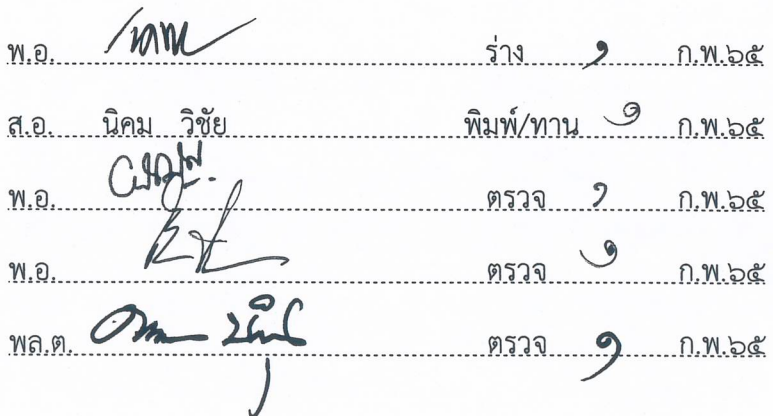 พ.อ. ร่าง ๑ ก.พ.๖๕
ส.อ. นิคม วิชัย พิมพ์/ทาน ๑ ก.พ.๖๕
พ.อ. ตรวจ ๑ ก.พ.๖๕
พ.อ. ตรวจ ๑ ก.พ.๖๕
พล.ต. ตรวจ ๑ ก.พ.๖๕